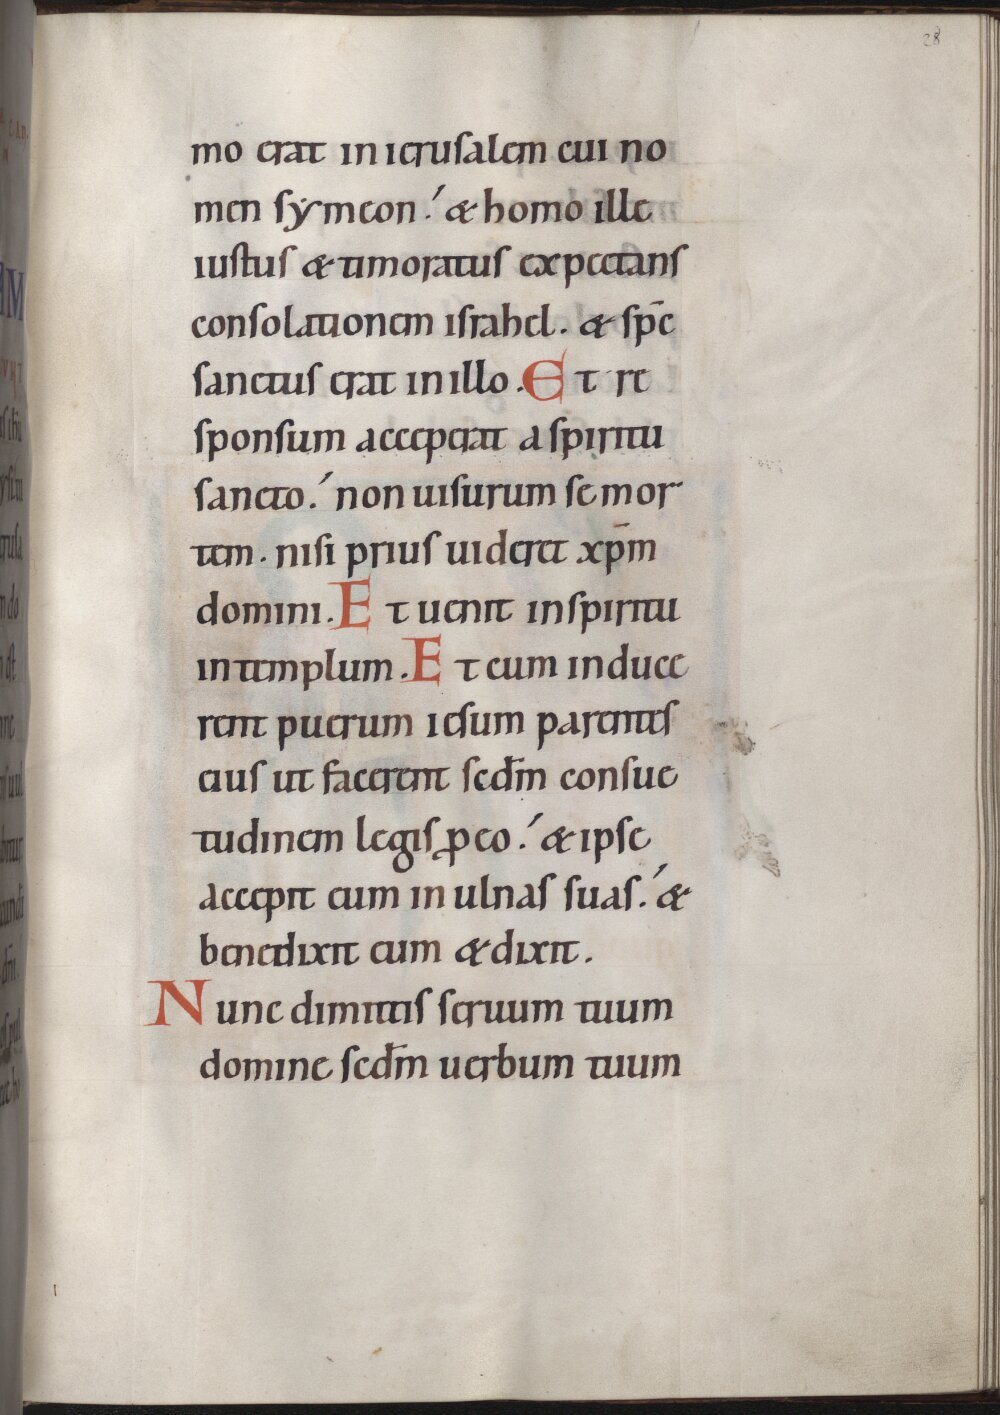 28
mo erat in ierusalem cui no
men symeon. & homo ille
iustus & timoratus expectans
consolationem israhel. & sp̄c
sanctus erat in illo. Et re
sponsum acceperat a spiritu
sancto. non uisurum se mor
tem. nisi prius uideret xp̄m
domini. Et uenit in spiritu
in templum. Et cum induce
rent puerum iesum parentes
eius ut facerent scdm̄ consue
tudinem legis ꝓ eo. & ipse
accepit eum in ulnas suas. &
benedixit eum & dixit.
Nunc dimittis seruum tuum
domine scdm̄ uerbum tuum